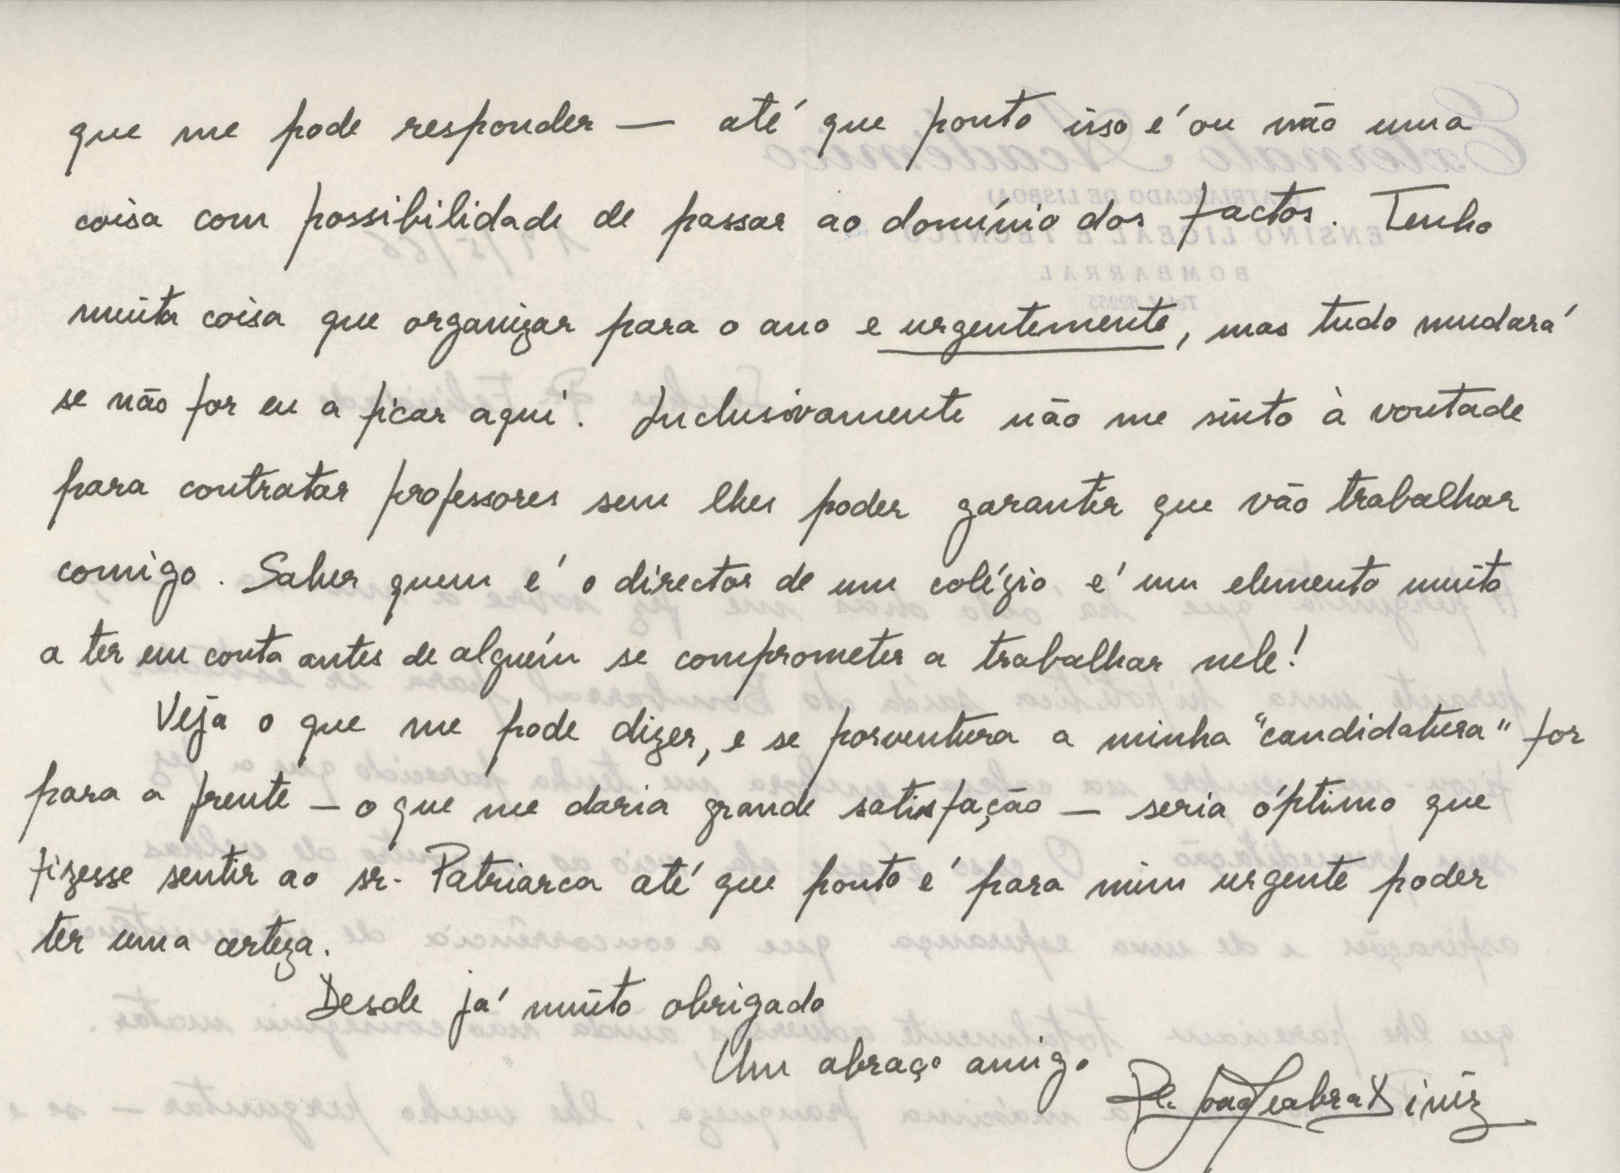 que me pode responder — até que ponto isso é ou não uma
coisa com possibilidade de passar ao domínio dos factos. Tenho
muita coisa que organizar para o ano e urgentemente, mas tudo mudará
se não for eu a ficar aqui. Inclusivamente não me sinto à vontade
para contratar professores sem lhes poder garantir que vão trabalhar
comigo. Saber quem é o director de um colégio é um elemento muito
a ter em conta antes de alguém se comprometer a trabalhar nele!
Veja o que me pode dizer, e se porventura a minha "candidatura" for
para a frente — o que me daria grande satisfação — seria óptimo que
fizesse sentir ao sr. Patriarca até que ponto é para mim urgente poder
ter uma certeza.
Desde já muito obrigado
Um abraço amigo
Pe. João Seabra Diniz